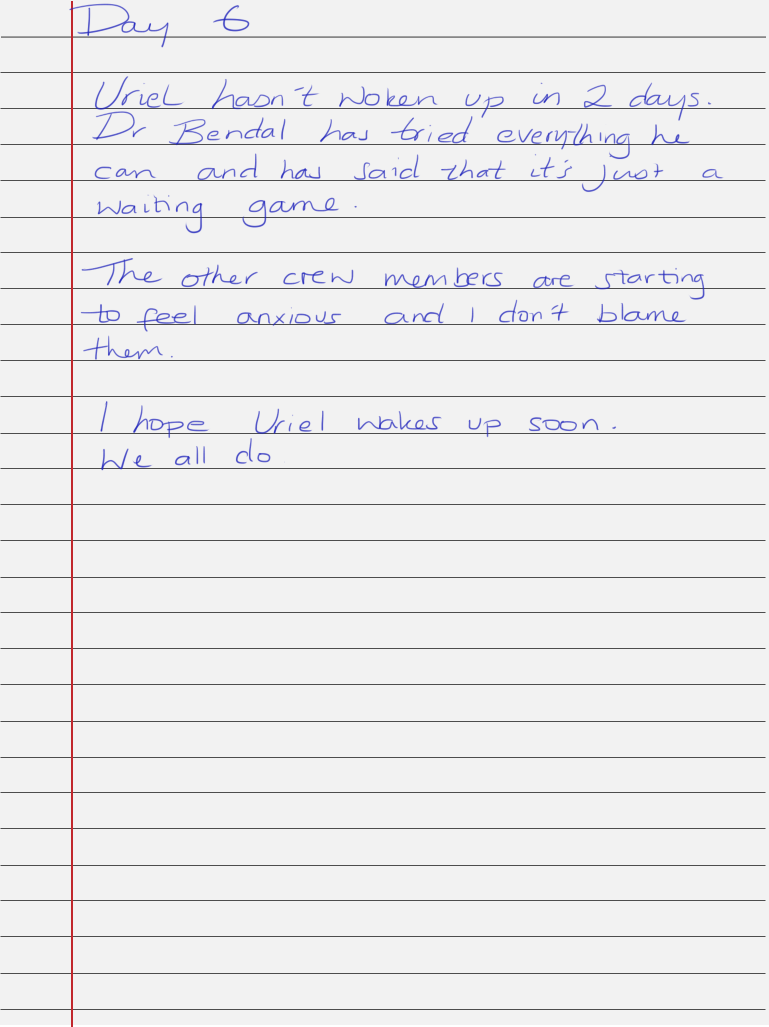 Day 6
Uriel hasn't woken up in 2 days.
Dr Bendal has tried everything he
can and has said that it's just a
waiting game.
The other crew members are starting
to feel anxious and I don't blame
them.
I hope Uriel wakes up soon.
We all do